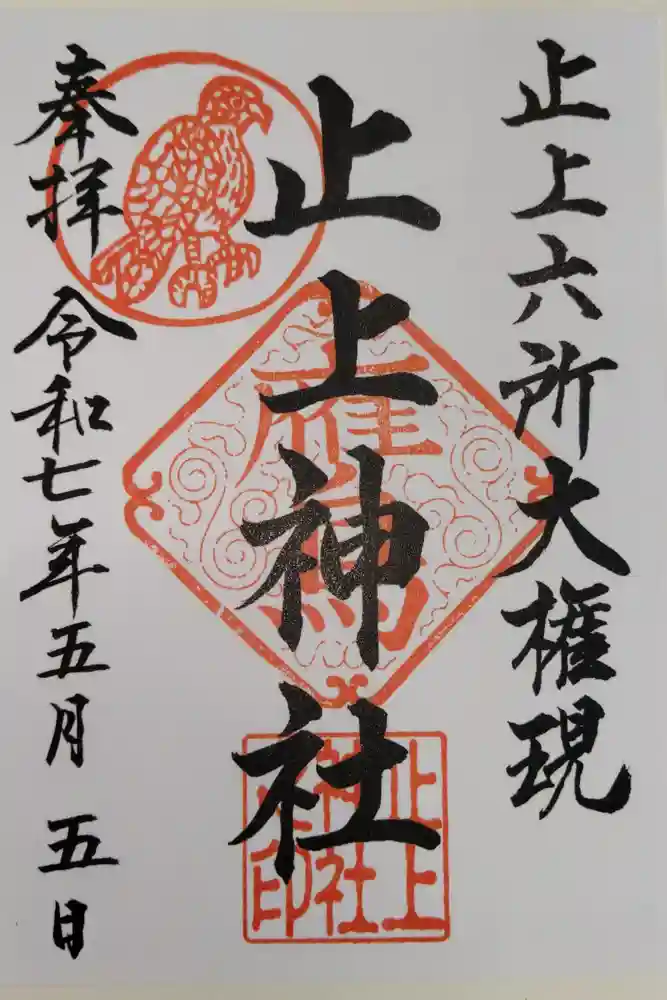 止上六所大権現
止上神社
奉拝 令和七年五月五日
鷹
止上
神社
印